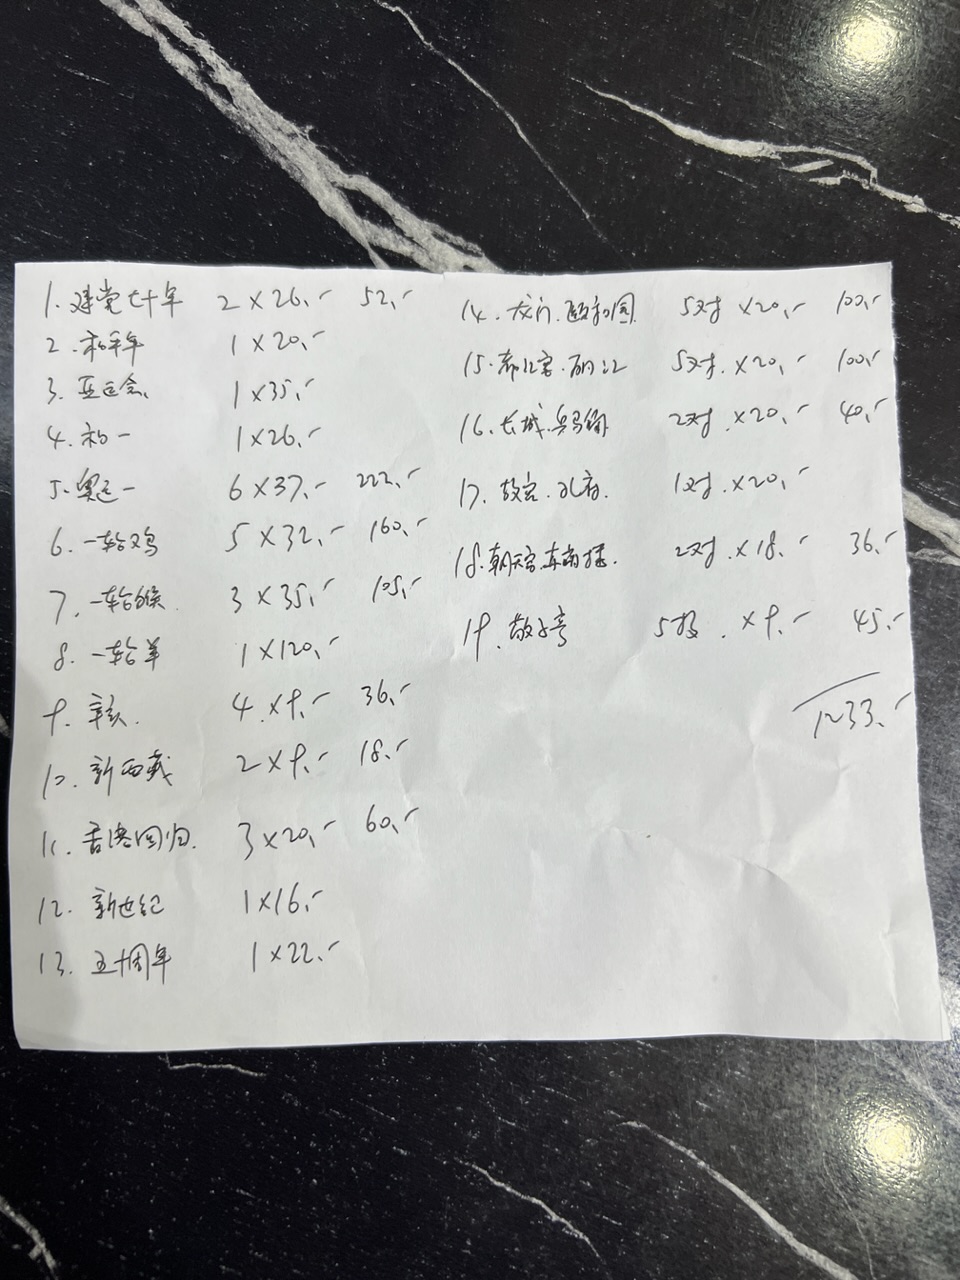 1. 建党七十年 2×26.- 52.-
2. 和平年 1×20.-
3. 亚运会 1×35.-
4. 和一 1×26.-
5. 奥运一 6×37.- 222.-
6. 一轮鸡 5×32.- 160.-
7. 一轮猴 3×35.- 105.-
8. 一轮羊 1×120.-
9. 辛亥 4×9.- 36.-
10. 新西藏 2×9.- 18.-
11. 香港回归 3×20.- 60.-
12. 新世纪 1×16.-
13. 五十周年 1×22.-
14. 龙门.颐和园 5对×20.- 100.-
15. 布达拉宫.丽江 5对×20.- 100.-
16. 长城.兵马俑 2对×20.- 40.-
17. 故宫.孔府 1对×20.-
18. 朝天宫.赤嵌楼 2对×18.- 36.-
19. 敬亭 5枚×9.- 45.-
1233.-